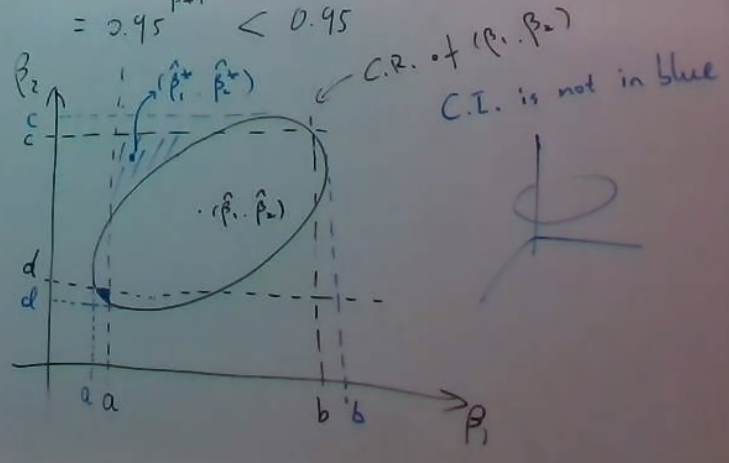 = 0.95 < 0.95
β₂
(β̂₁* . β̂₂*)
C.R. of (β₁ . β₂)
C.I. is not in blue
c
c
. (β̂₁ . β̂₂)
d
d
a a
b b
β₁